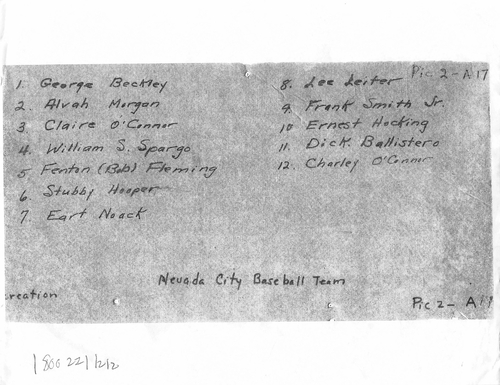 Pic 2 - A17
1. George Beckley
2. Alvah Morgan
3. Claire O'Connor
4. William S. Spargo
5 Fenton (Bob) Fleming
6. Stubby Hooper
7. Earl Noack
8. Lee Leiter
9. Frank Smith Jr.
10 Ernest Hocking
11. Dick Ballistero
12. Charley O'Connor
Nevada City Baseball Team
creation
Pic 2 - A17